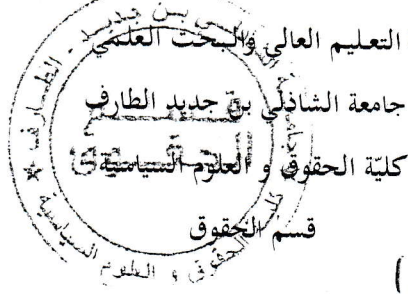 التعليم العالي والبحث العلمي
جامعة الشاذلي بنّ جديد الطارف
كليّة الحقوق و العلوم السياسية
قسم الحقوق